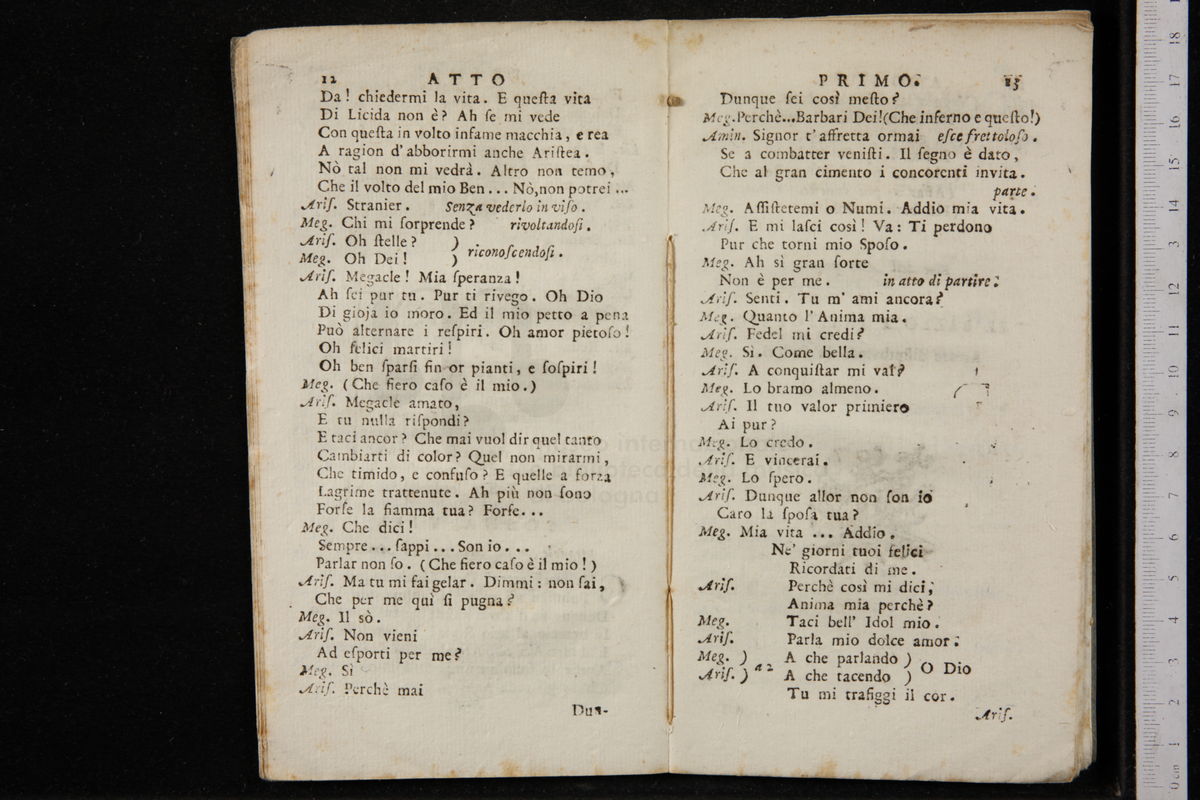 12 ATTO
Da! chiedermi la vita. E queſta vita
Di Licida non è? Ah ſe mi vede
Con queſta in volto infame macchia, e rea
A ragion d'abborirmi anche Ariſtea.
Nò tal non mi vedrà. Altro non temo,
Che il volto del mio Ben... Nò, non potrei...
Ariſ. Stranier. Senza vederlo in viſo.
Meg. Chi mi ſorprende? rivoltandoſi.
Ariſ. Oh ſtelle? )
Meg. Oh Dei! ) riconoſcendoſi.
Ariſ. Megacle! Mia ſperanza!
Ah ſei pur tu. Pur ti rivego. Oh Dio
Di gioja io moro. Ed il mio petto a pena
Può alternare i reſpiri. Oh amor pietoſo!
Oh felici martiri!
Oh ben ſparſi fin or pianti, e ſoſpiri!
Meg. (Che fiero caſo è il mio.)
Ariſ. Megacle amato,
E tu nulla riſpondi?
E taci ancor? Che mai vuol dir quel tanto
Cambiarti di color? Quel non mirarmi,
Che timido, e confuſo? E quelle a forza
Lagrime trattenute. Ah più non ſono
Forſe la fiamma tua? Forſe...
Meg. Che dici!
Sempre... ſappi... Son io...
Parlar non ſo. (Che fiero caſo è il mio!)
Ariſ. Ma tu mi fai gelar. Dimmi: non ſai,
Che per me quì ſi pugna?
Meg. Il sò.
Ariſ. Non vieni
Ad eſporti per me?
Meg. Sì
Ariſ. Perchè mai
Dun-
PRIMO. 13
Dunque ſei così meſto?
Meg. Perchè... Barbari Dei! (Che inferno e queſto!)
Amin. Signor t'affretta ormai eſce frettoloſo.
Se a combatter veniſti. Il ſegno è dato,
Che al gran cimento i concorenti invita.
parte.
Meg. Aſſiſtetemi o Numi. Addio mia vita.
Ariſ. E mi laſci così! Va: Ti perdono
Pur che torni mio Spoſo.
Meg. Ah sì gran ſorte
Non è per me. in atto di partire.
Ariſ. Senti. Tu m'ami ancora?
Meg. Quanto l'Anima mia.
Ariſ. Fedel mi credi?
Meg. Sì. Come bella.
Ariſ. A conquiſtar mi vai?
Meg. Lo bramo almeno.
Ariſ. Il tuo valor primiero
Ai pur?
Meg. Lo credo.
Ariſ. E vincerai.
Meg. Lo ſpero.
Ariſ. Dunque allor non ſon io
Caro la ſpoſa tua?
Meg. Mia vita ... Addio.
Ne' giorni tuoi felici
Ricordati di me.
Ariſ. Perchè così mi dici,
Anima mia perchè?
Meg. Taci bell' Idol mio.
Ariſ. Parla mio dolce amor.
Meg. ) a 2 A che parlando ) O Dio
Ariſ. ) A che tacendo )
Tu mi trafiggi il cor.
Ariſ.